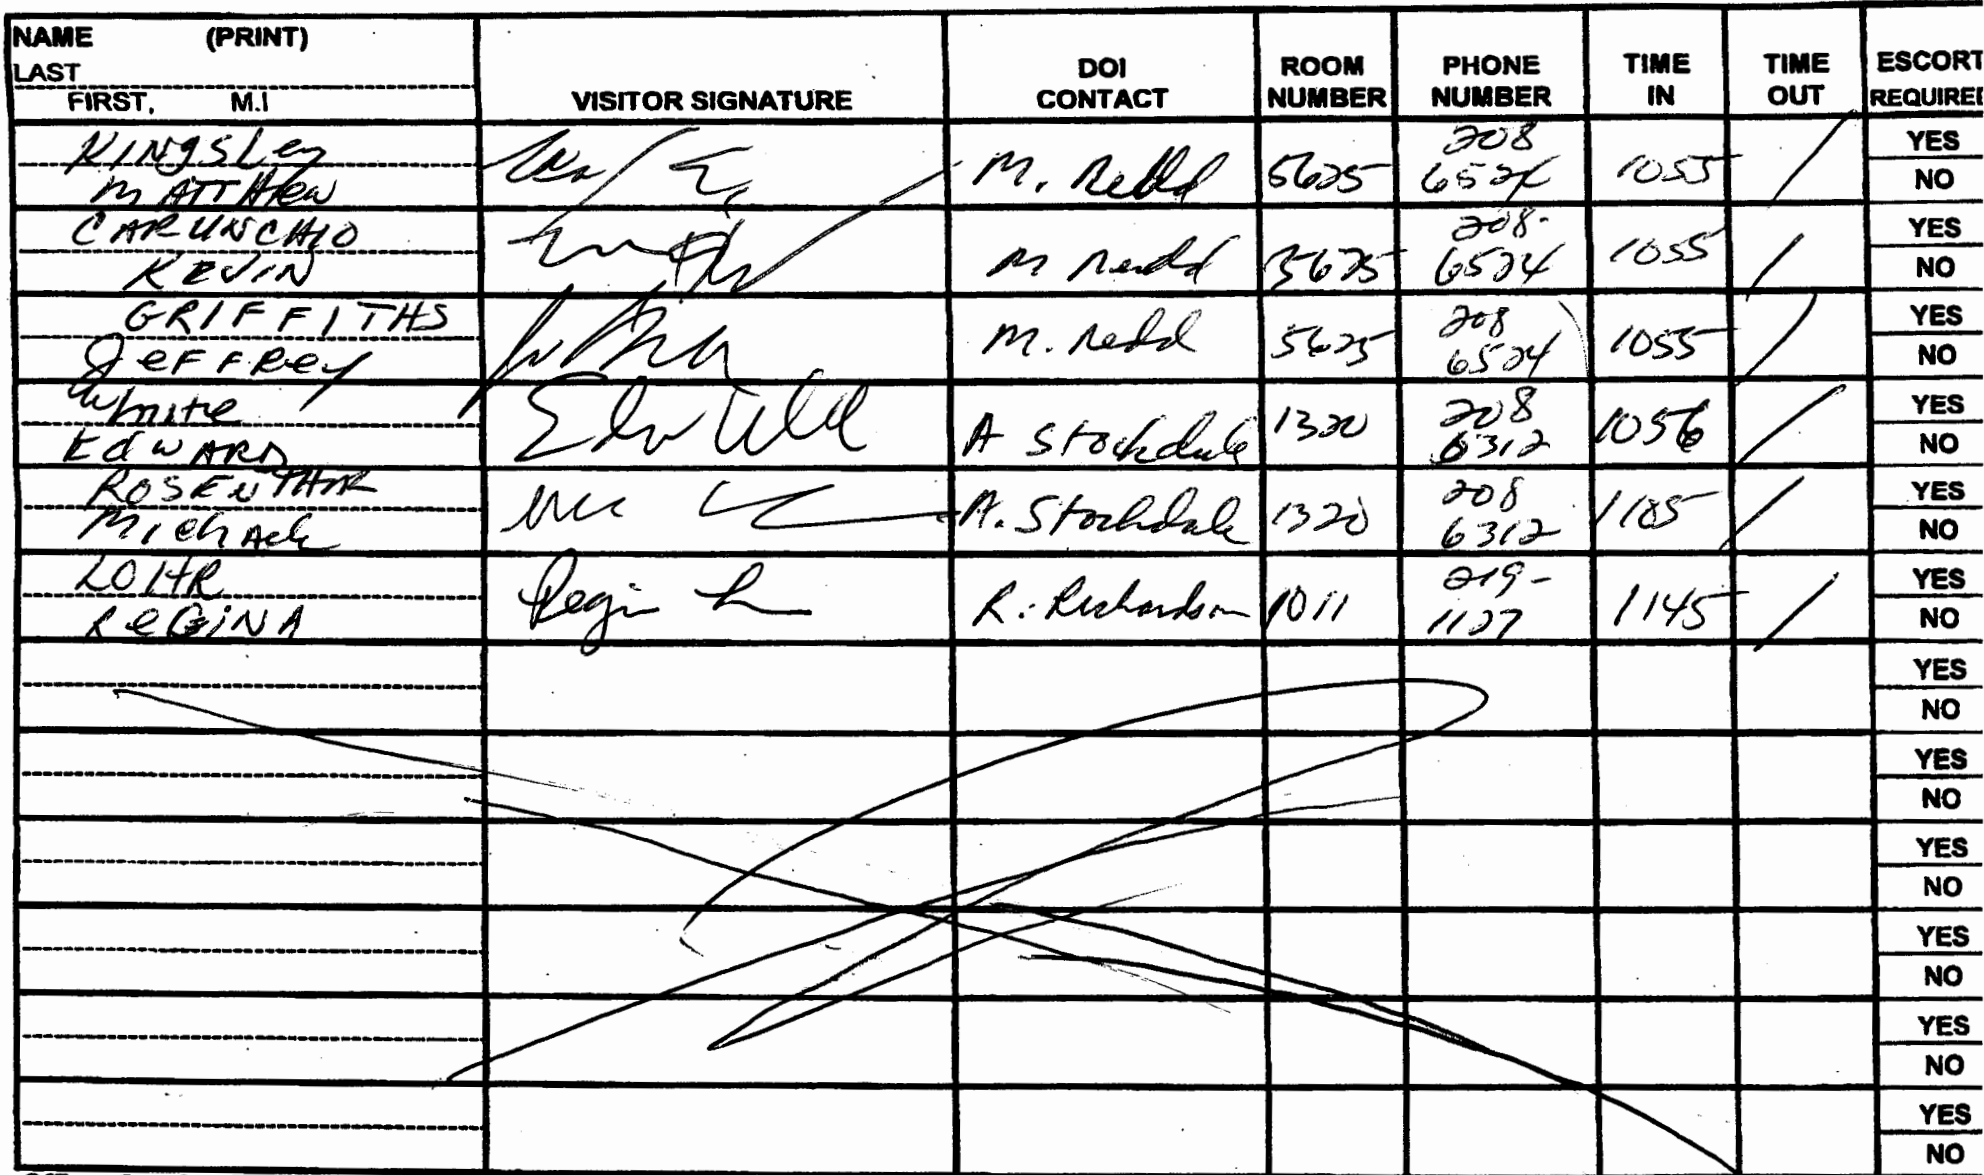 NAME (PRINT)
LAST
FIRST, M.I
VISITOR SIGNATURE
DOI
CONTACT
ROOM
NUMBER
PHONE
NUMBER
TIME
IN
TIME
OUT
ESCORT
REQUIRE
KINGSLey
MATTHew
M. Redd
5625
208
6524
1055
/
YES
NO
CARUNCHIO
KEVIN
M Redd
5625
208-
6524
1055
/
YES
NO
GRIFFITHS
JeFFRey
M. Redd
5625
208
6524
1055
/
YES
NO
White
EdWARD
A Stockdale
1320
208
6312
1056
/
YES
NO
Michael
A. Stockdale
1320
208
6312
1105
/
YES
NO
LOHR
ReGiNA
Regin
R. Richardson
1011
219-
1127
1145
/
YES
NO
YES
NO
YES
NO
YES
NO
YES
NO
YES
NO
YES
NO